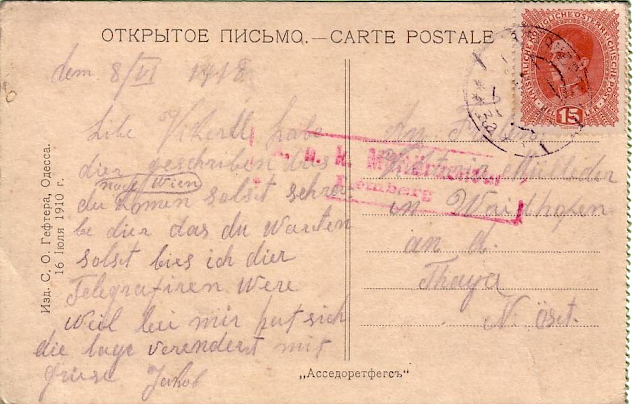 ОТКРЫТОЕ ПИСЬМО.—CARTE POSTALE
KAISERLICHE KÖNIGLICHE ÖSTERREICHISCHE POST
15
den 8/VI 1918
Libe habe
dier geschriben das
nach Wien
du komen solst schrei
be dier das du warten
solst bies ich dier
Telegrafiren were
Weil bei mir hat sich
die lage verendert mit
gruse Jakob
An
in Waidhofen
an d.
Thaya
N. Öst.
k. u. k. Militärzensur
Lemberg
Изд. С. О. Гефтера, Одесса.
16 Іюля 1910 г.
„Асседоретфегсъ"